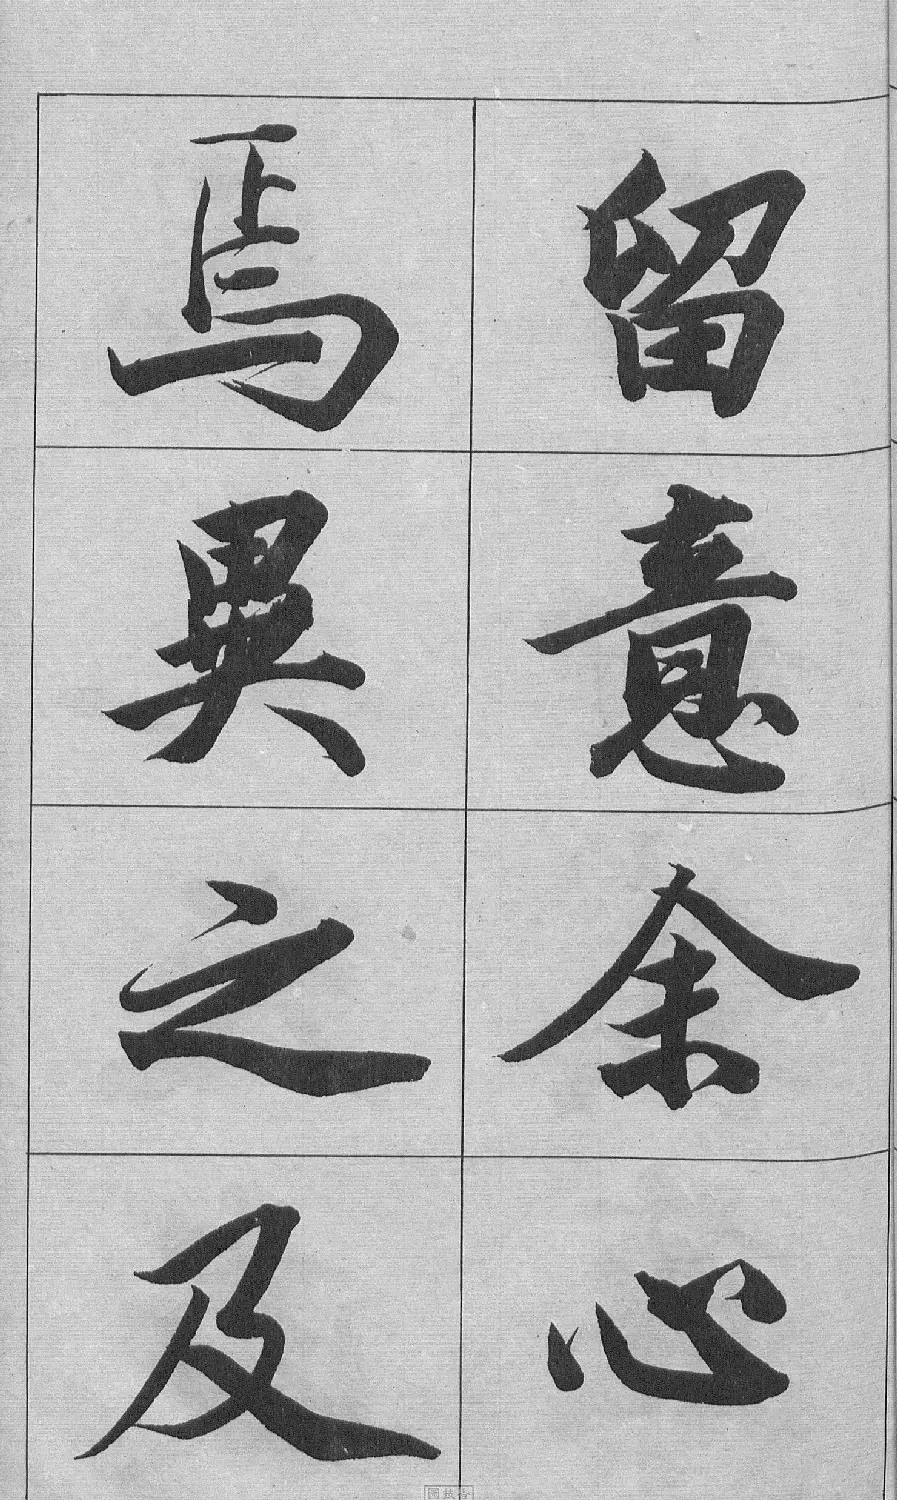 留意余心
焉異之及